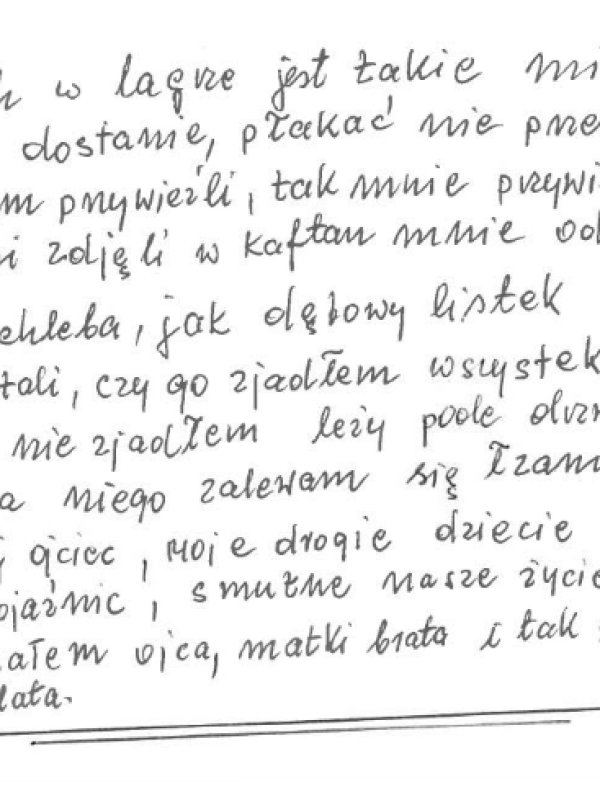 w lagrze jest takie
dostanie, płakać nie prze
przywieźli, tak mnie przywi
zdjęli w kaftan mnie od
chleba, jak dębowy listek
tali, czy go zjadłem wszystek
nie zjadłem leży pode drzw
niego zalewam się łzam
ojciec, moje drogie dziecie
ojaźnic, smutne nasze życie
ałem ojca, matki brata i tak
lata.